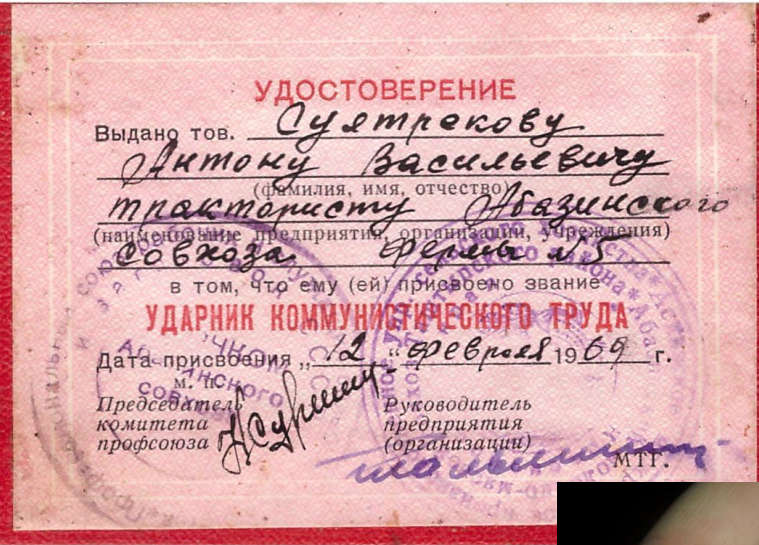 УДОСТОВЕРЕНИЕ
Выдано тов. Султрекову
Антону Васильевичу
(фамилия, имя, отчество)
трактористу Абазинского
(наименование предприятия, организации, учреждения)
совхоза фермы №5
в том, что ему (ей) присвоено звание
УДАРНИК КОММУНИСТИЧЕСКОГО ТРУДА
Дата присвоения „12“ февраля 1969 г.
м. п.
Председатель комитета профсоюза
Руководитель предприятия (организации)
МТГ.